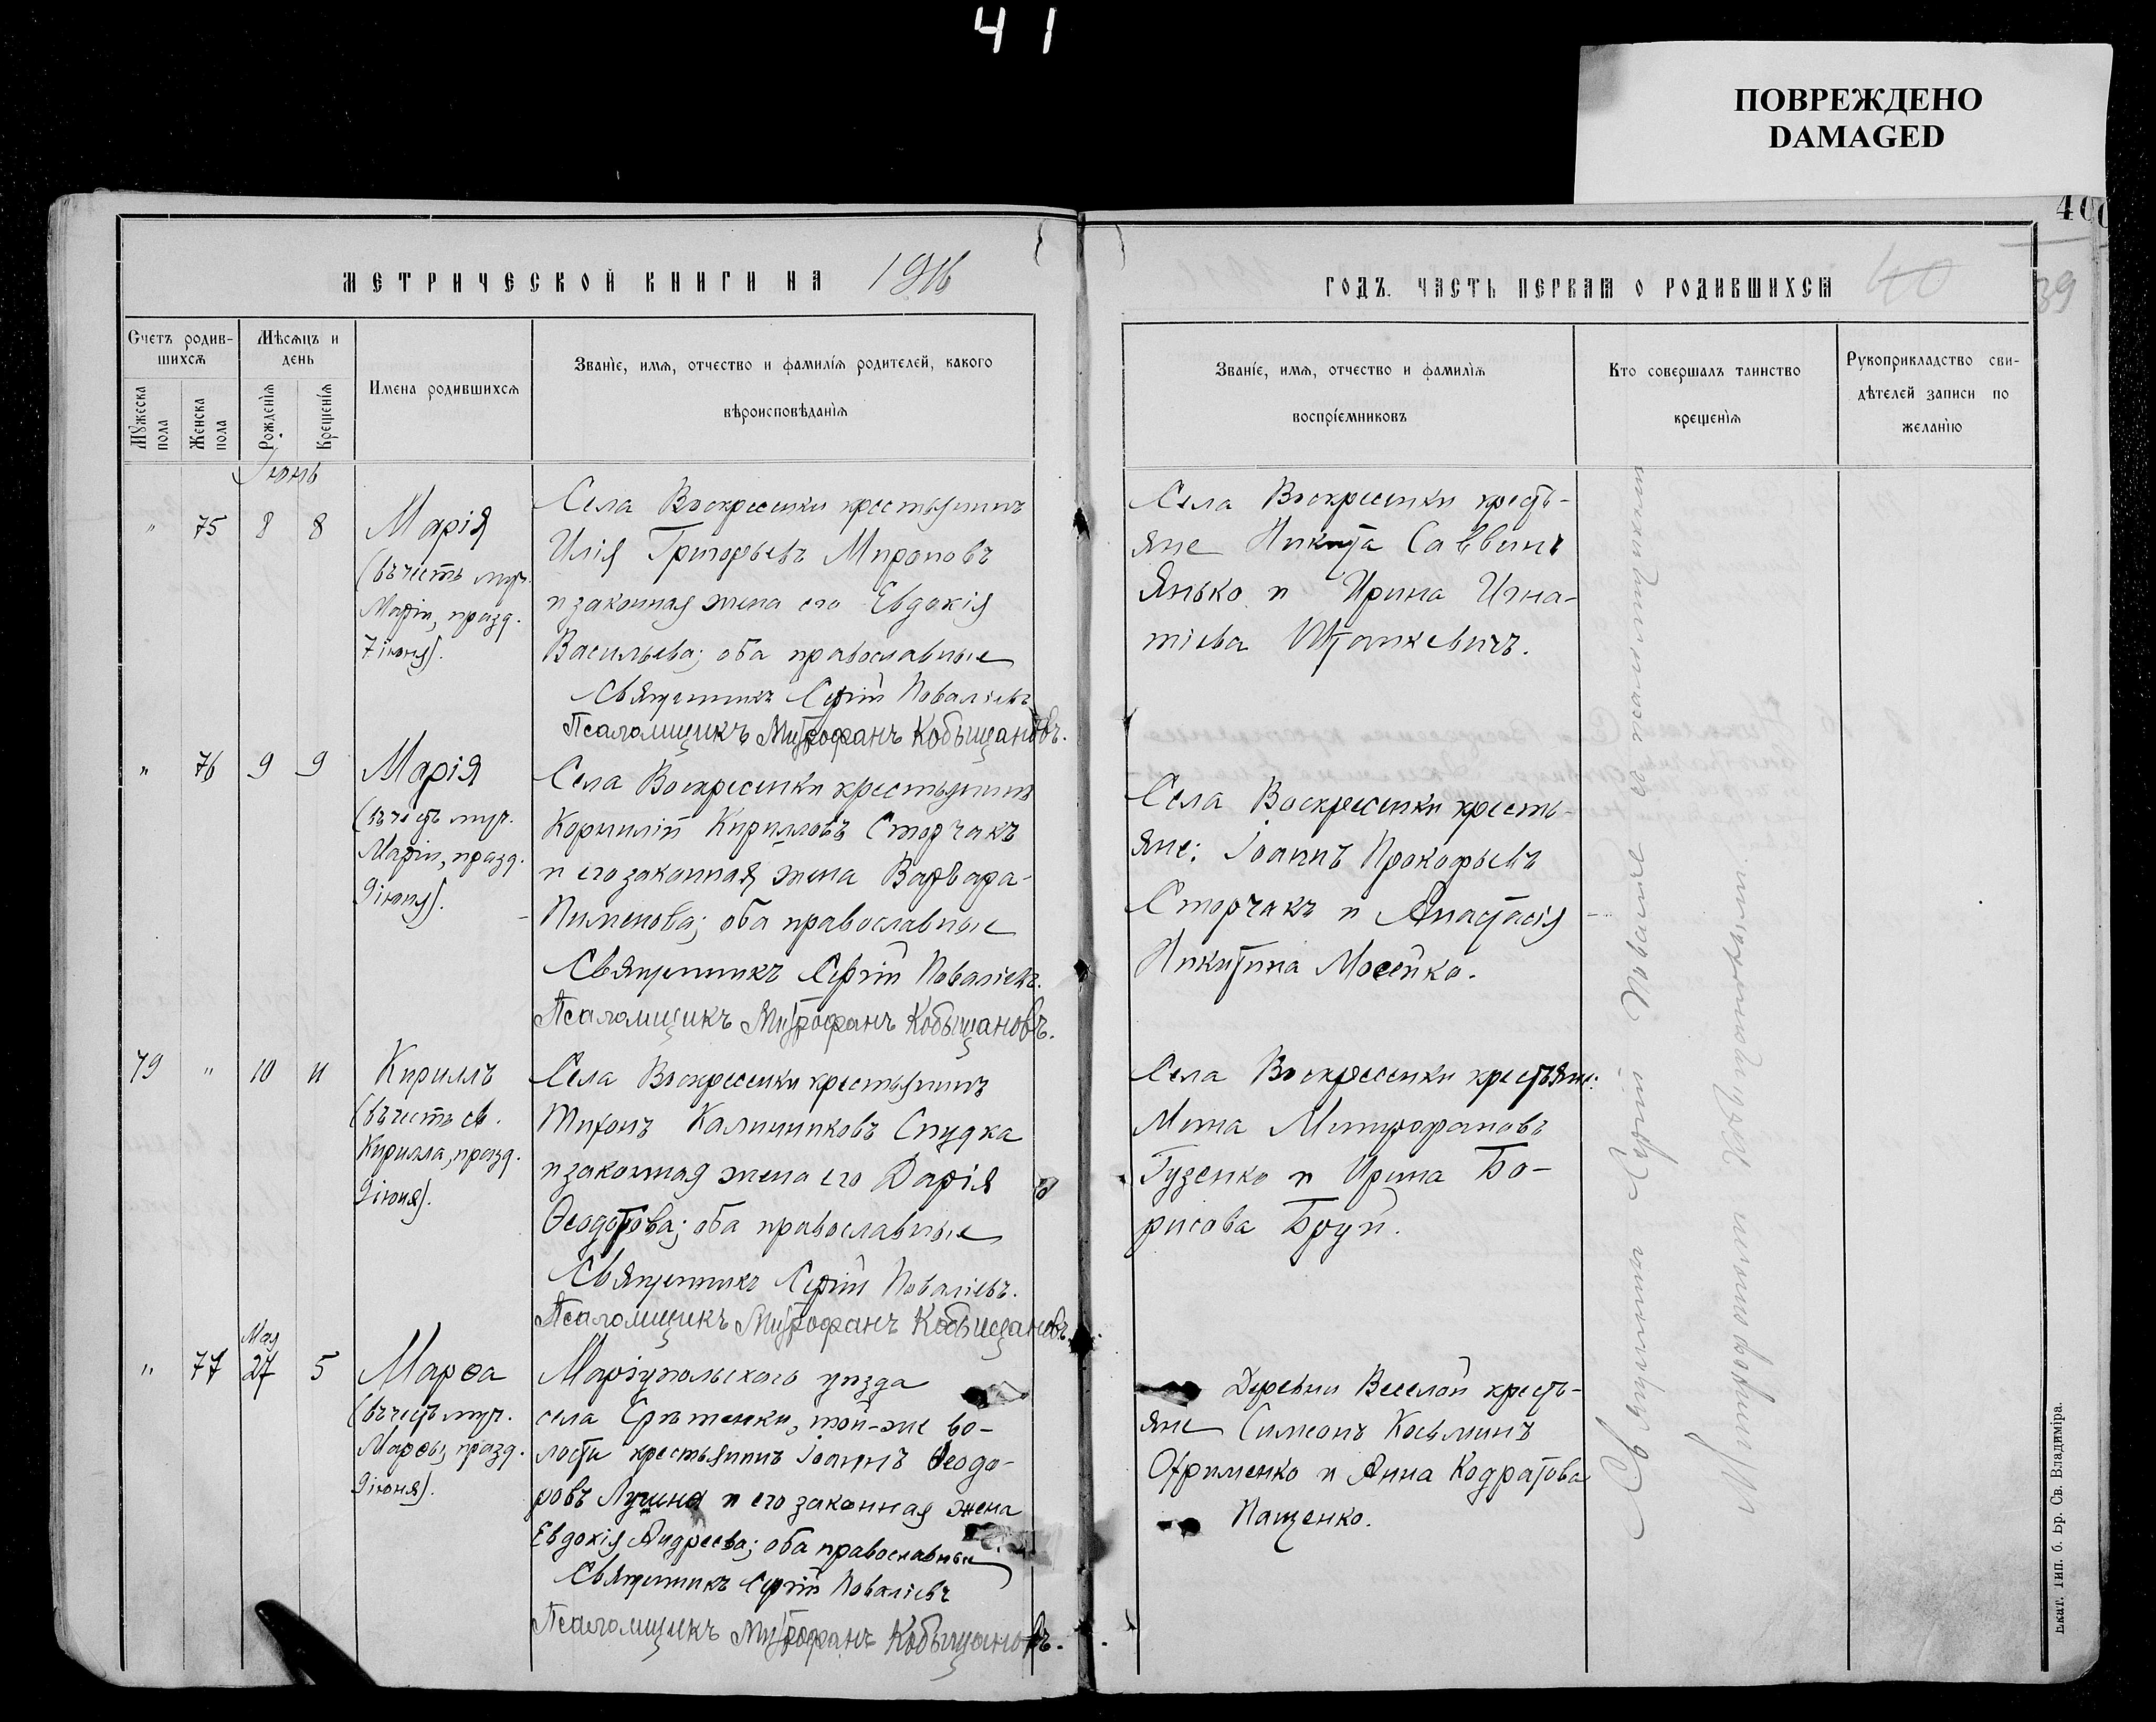 41
ПОВРЕЖДЕНО
DAMAGED
400
39
40
МЕТРИЧЕСКОЙ КНИГИ НА 1916
ГОДЪ. ЧАСТЬ ПЕРВАЯ О РОДИВШИХСЯ
Счетъ родив-
шихся
Мужеска пола
Женска пола
Мѣсяцъ и
день
Рожденія
Крещенія
Имена родившихся
Званіе, имя, отчество и фамилія родителей, какого
вѣроисповѣданія
Званіе, имя, отчество и фамилія
воспріемниковъ
Кто совершалъ таинство
крещенія
Рукоприкладство сви-
дѣтелей записи по
желанію
Іюнь
" 75 8 8
Марія
(въ честь муч.
Маріи, празд.
7 іюня).
Села Воскресенки крестьянинъ
Илія Григорьевъ Мироновъ
и законная жена его Евдокія
Васильева; оба православные
Священникъ Сергій Поваліевъ
Псаломщикъ Митрофанъ Кобыщановъ.
Села Воскресенки кресть-
яне Никита Саввинъ
Янько и Ирина Игна-
тіева
" 76 9 9
Марія
(въ честь муч.
Маріи, празд.
9 іюня).
Села Воскресенки крестьянинъ
Корнилій Кирилловъ Сторчакъ
и его законная жена Варвара
Пименова; оба православные
Священникъ Сергій Поваліевъ.
Псаломщикъ Митрофанъ Кобыщановъ.
Села Воскресенки кресть-
яне: Іоаннъ Прокофьевъ
Сторчакъ и Анастасія
Никитина Мосейко.
79 " 10 11
Кириллъ
(въ честь св.
Кирилла, празд.
9 іюня).
Села Воскресенки крестьянинъ
Тихонъ Калинниковъ Спудка
и законная жена его Дарія
Ѳеодотова; оба православные
Священникъ Сергій Поваліевъ.
Псаломщикъ Митрофанъ Кобыщановъ.
Села Воскресенки крестьяне:
Мина Митрофановъ
Гузенко и Ирина Бо-
рисова Бруй.
Мая
" 77 27 5
Марѳа
(въ честь муч.
Марѳы, празд.
9 іюня).
Маріупольскаго уѣзда
села той-же во-
лости крестьянинъ Іоаннъ Ѳеодо-
ровъ и его законная жена
Евдокія Андреева; оба православные
Священникъ Сергій Поваліевъ
Псаломщикъ Митрофанъ Кобыщановъ.
Деревни Веселой кресть-
яне Симеонъ Косьминъ
Охрименко и Анна Кодратова
Пащенко.
Священникъ Сергій Поваліевъ съ псаломщикомъ
Митрофаномъ Кобыщановымъ
Екат. Тип. б. Бр. Св. Владиміра.